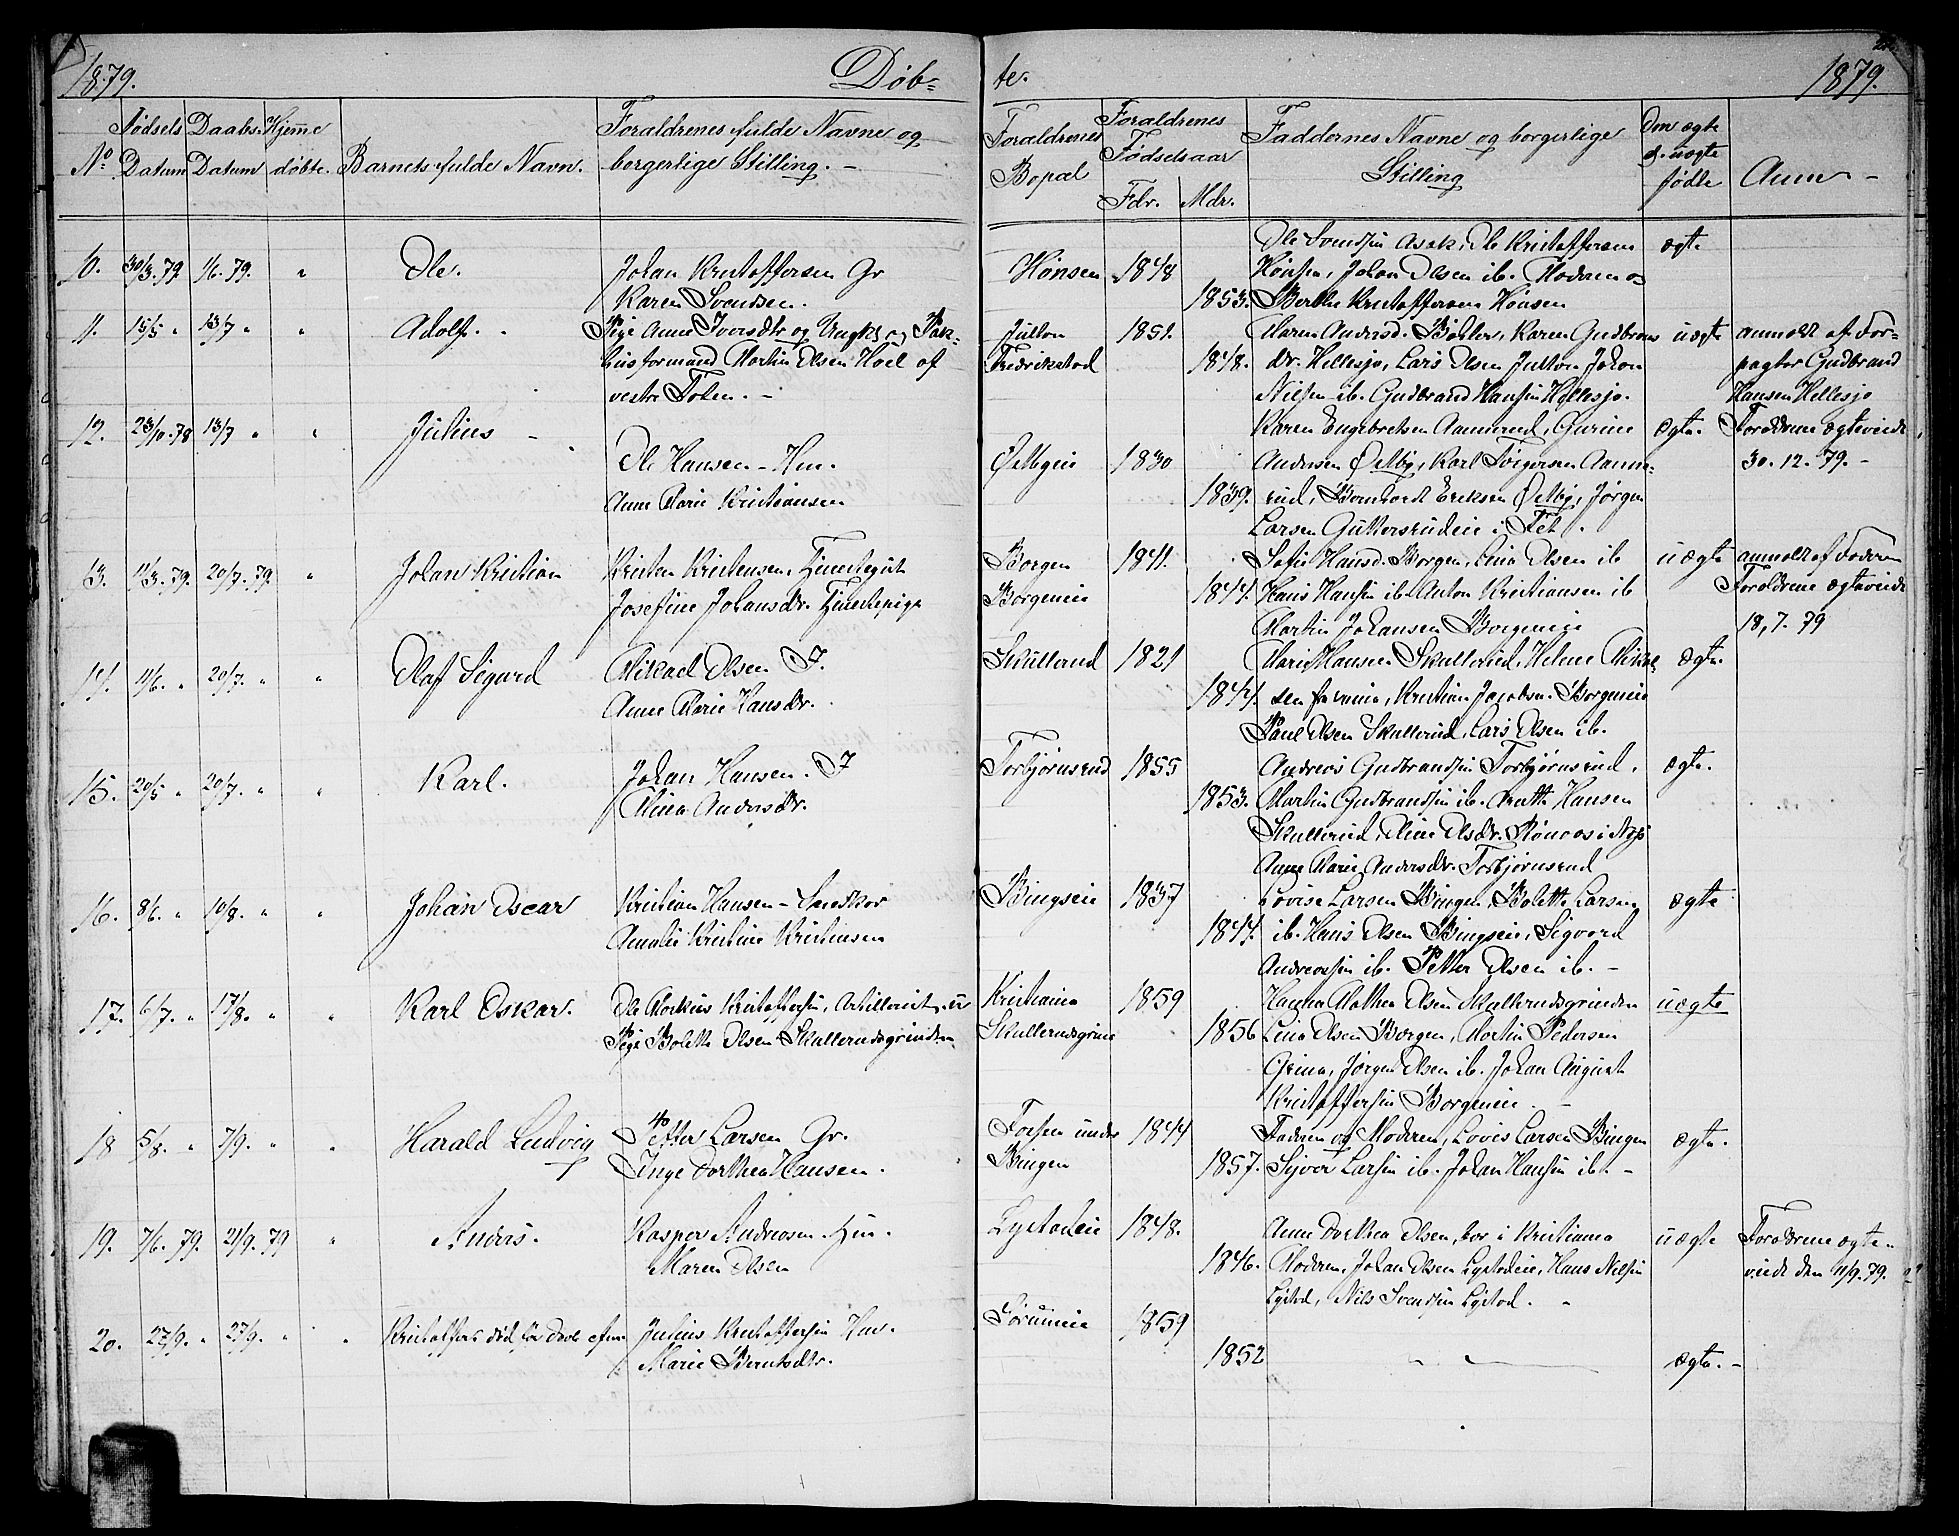 1879. Døb-
te. 1879.
No Fødsels Datum Daabs Datum Hjemme døbte. Barnets fulde Navn. Forældrenes fulde Navne og borgerlige Stilling. -
Forældrenes Bopæl Forældrenes Fødselsaar Fdr. Mdr. Faddernes Navne og borgerlige Stilling Om ægte el. uægte fødte Anm -
10. 30/3. 79 1/6. 79. " Ole. Johan Kristoffersen Gr
Karen Svendsen.
Hønsen 1848
1853.
Ole Svendsen Aasek, Ole Kristoffersen
Hønsen, Johan Olsen ib. Moderen og
Berthe Kristoffersen Hønsen
ægte
11. 15/5 " 13/7 " " Adolf. Pige Anne Iversdtr og Ungk. og Pak-
husformand Martin Olsen Hoel af
vestre Toten. -
Julton 1851.
Fredrikstad 1848.
Maren Andersd. Bøhler, Karen Gudbrans
dr. Hellesjø, Lars Olsen Julton Johan
Nilsen ib. Gudbrand Hansen Hellesjø.
uægte
anmeldt af For-
pagter Gudbrand
Hansen Hellesjø
12. 23/10. 78 13/7 " " Julius -
Ole Hansen - Hm.
Anne Marie Kristiansen
Ødbyeie 1830
1839.
Karen Engebretsen Aamerud, Gurine
Andersen Ødby, Karl Torgersen Aame-
rud, Bernhard Eriksen Ødby, Jørgen
Larsen Guttersrudeie i Fet.
ægte.
Forældrene ægteviede
30. 12. 79. -
13. 11/3. 79. 20/7. 79. " Johan Kristian Kristen Kristensen, Tjenestegut
Josefine Johansdr. Tjenestepige
Borgen 1841.
Borgeneie 1844.
Sofie Hansd. Borgen, Lina Olsen ib
Hans Hansen ib. Anton Kristiansen ib
Martin Johansen Borgeneie
uægte
anmeldt af Faderen
Forældrene ægteviede
18, 7. 79
14. 1/6. " 20/7. " " Olaf Sigurd Mikael Olsen I.
Anne Marie Hansdr.
Skullerud 1821
1844.
Marie Hansen Skullerud, Helene Mikkel
sen Kristian Jacobsen Borgeneie
Paul Olsen Skullerud, Lars Olsen ib.
ægte.
15. 20/5 " 20/7. " " Karl. Johan Hansen. I
Mina Andersdr.
Torbjørnsrud 1855
1853.
Andreas Gudbrandsen Torbjørnsrud.
Martin Gudbrandsen ib. Hansen
Skullerud, Oline Olsdr. i
Anne Marie Andersdr. Torbjørnsrud
ægte.
16. 8/6. " 10/8. " " Johan Oscar Kristian Hansen -
Amalie Kristine Kristensen
Bingseie 1837
1844.
Lovise Larsen Bingen, Bolette Larsen
ib. Hans Olsen Bingseie, Sigvard
Andreassen ib. Petter Olsen ib. -
ægte
17. 6/7. " 17/8. " " Karl Oskar. Ole Markus Kristoffersen, Artillerist, ur
Pige Bolette Olsen Skullerudsgrinden
Kristiania 1859
Skullerudsgrind 1856
Hanna Mathea Olsen Skullerudsgrinden
Lina Olsen Borgen, Martin Pedersen
Grina, Jørgen Olsen ib. Johan August
Kristoffersen Borgeneie. -
uægte
18 5/8. " 7/9. " " Harald Ludvig Petter Larsen Gr.
Inge Dorthea Hansen.
Fossen under 1844
Bingen 1857.
Faderen og Moderen, Lovis Larsen Bingen
Syver Larsen ib. Johan Hansen ib. -
ægte.
19. 7/6. 79. 21/9. 79 " Anders. Kasper Andreasen Hm.
Maren Olsen
Lystadeie 1848.
1846.
Anne Dorthea Olsen, bor i Kristiania
Moderen, Johan Olsen Lystadeie, Hans Nilsen
Lystad, Nils Svendsen Lystad. -
uægte
Forældrene ægte-
viede den 11/9. 79.
20. 27/9. " 27/9. " " Kristoffer død før Daab Julius Kristoffersen Hm.
Marie Berntsdtr.
Sørumeie 1859
1852
ægte. -